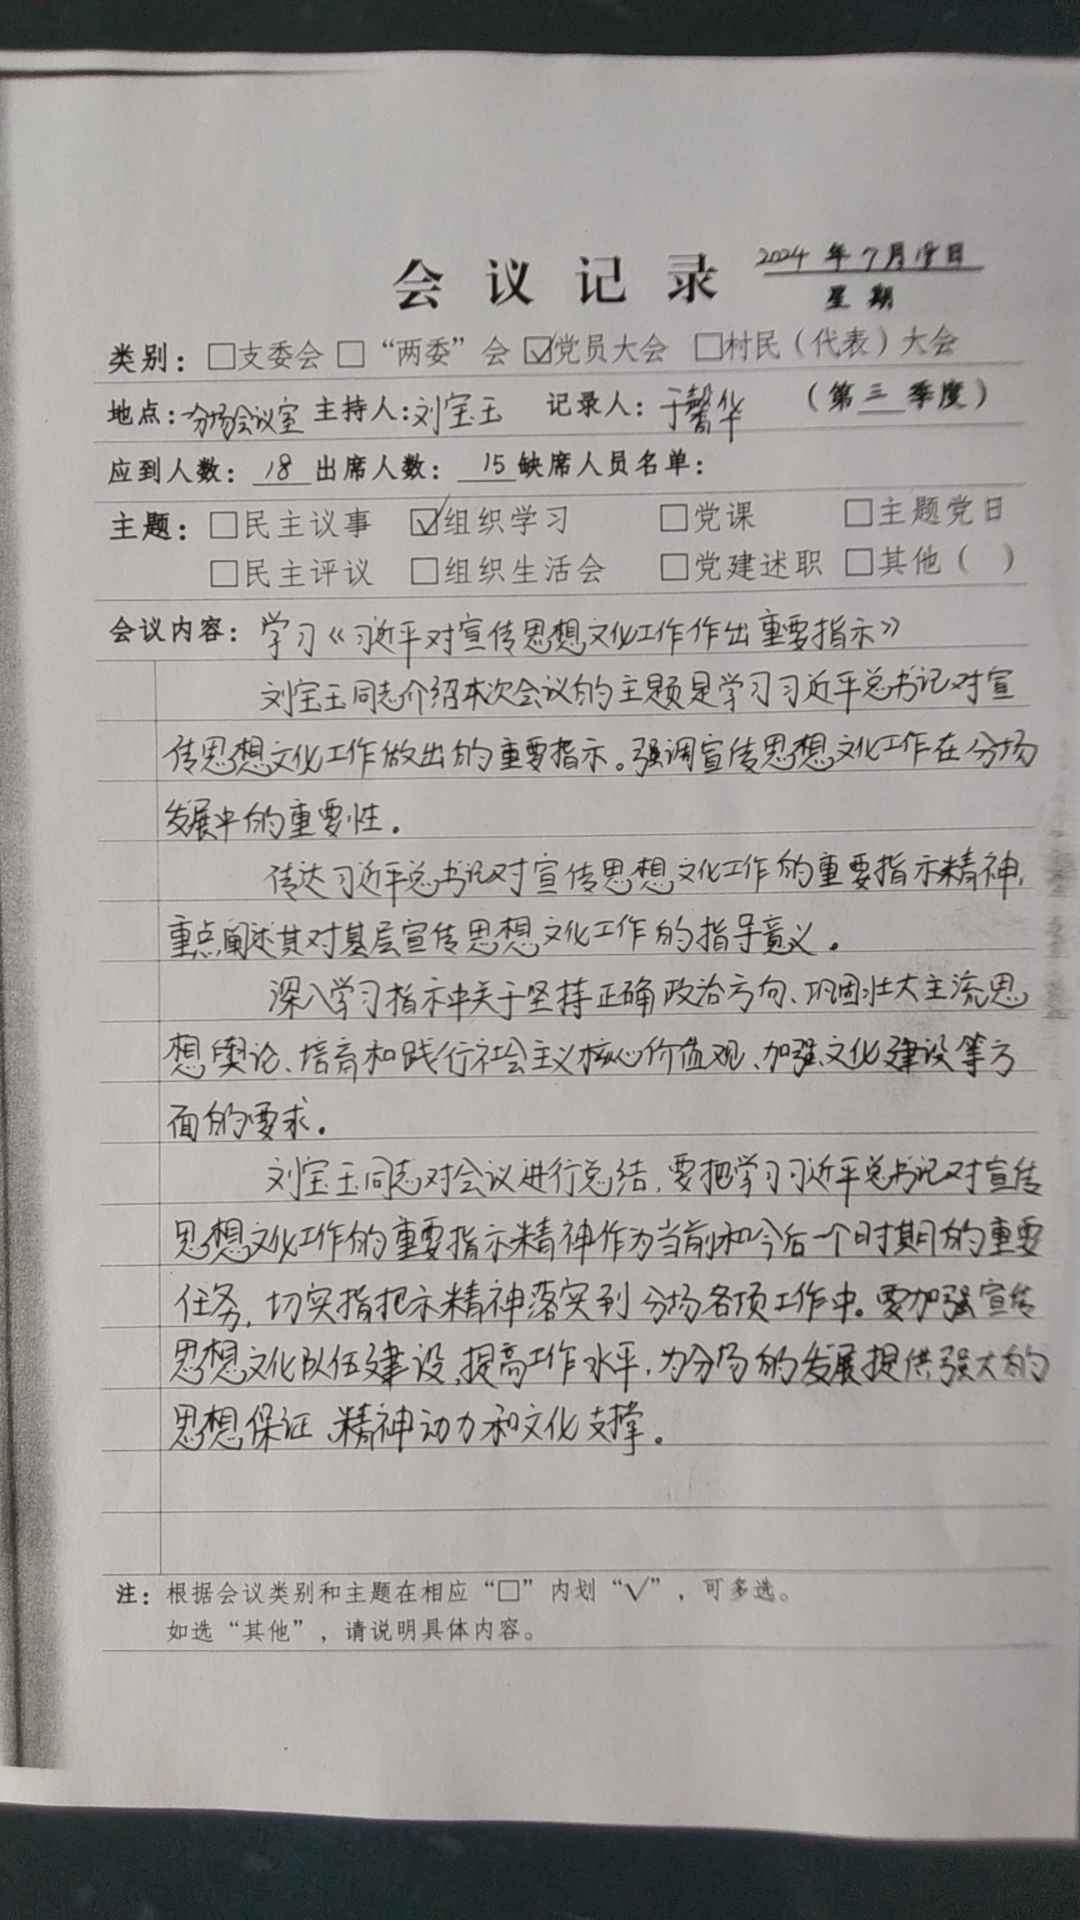 会议记录 2024年7月18日
星期
类别：□支委会 □“两委”会 ☑党员大会 □村民（代表）大会
地点：分场会议室 主持人：刘宝玉 记录人：于馨华 （第三季度）
应到人数：18 出席人数：15 缺席人员名单：
主题：□民主议事 ☑组织学习 □党课 □主题党日
□民主评议 □组织生活会 □党建述职 □其他（ ）
会议内容：学习《习近平对宣传思想文化工作作出重要指示》
刘宝玉同志介绍本次会议的主题是学习习近平总书记对宣
传思想文化工作做出的重要指示。强调宣传思想文化工作在分场
发展中的重要性.
传达习近平总书记对宣传思想文化工作的重要指示精神,
重点阐述其对基层宣传思想文化工作的指导意义.
深入学习指示中关于坚持正确政治方向、巩固壮大主流思
想舆论、培育和践行社会主义核心价值观、加强文化建设等方
面的要求.
刘宝玉同志对会议进行总结,要把学习习近平总书记对宣传
思想文化工作的重要指示精神作为当前和今后一个时期的重要
任务,切实指把示精神落实到分场各项工作中。要加强宣传
思想文化队伍建设,提高工作水平,为分场的发展提供强大的
思想保证、精神动力和文化支撑.
注：根据会议类别和主题在相应“□”内划“√”，可多选。
如选“其他”，请说明具体内容。